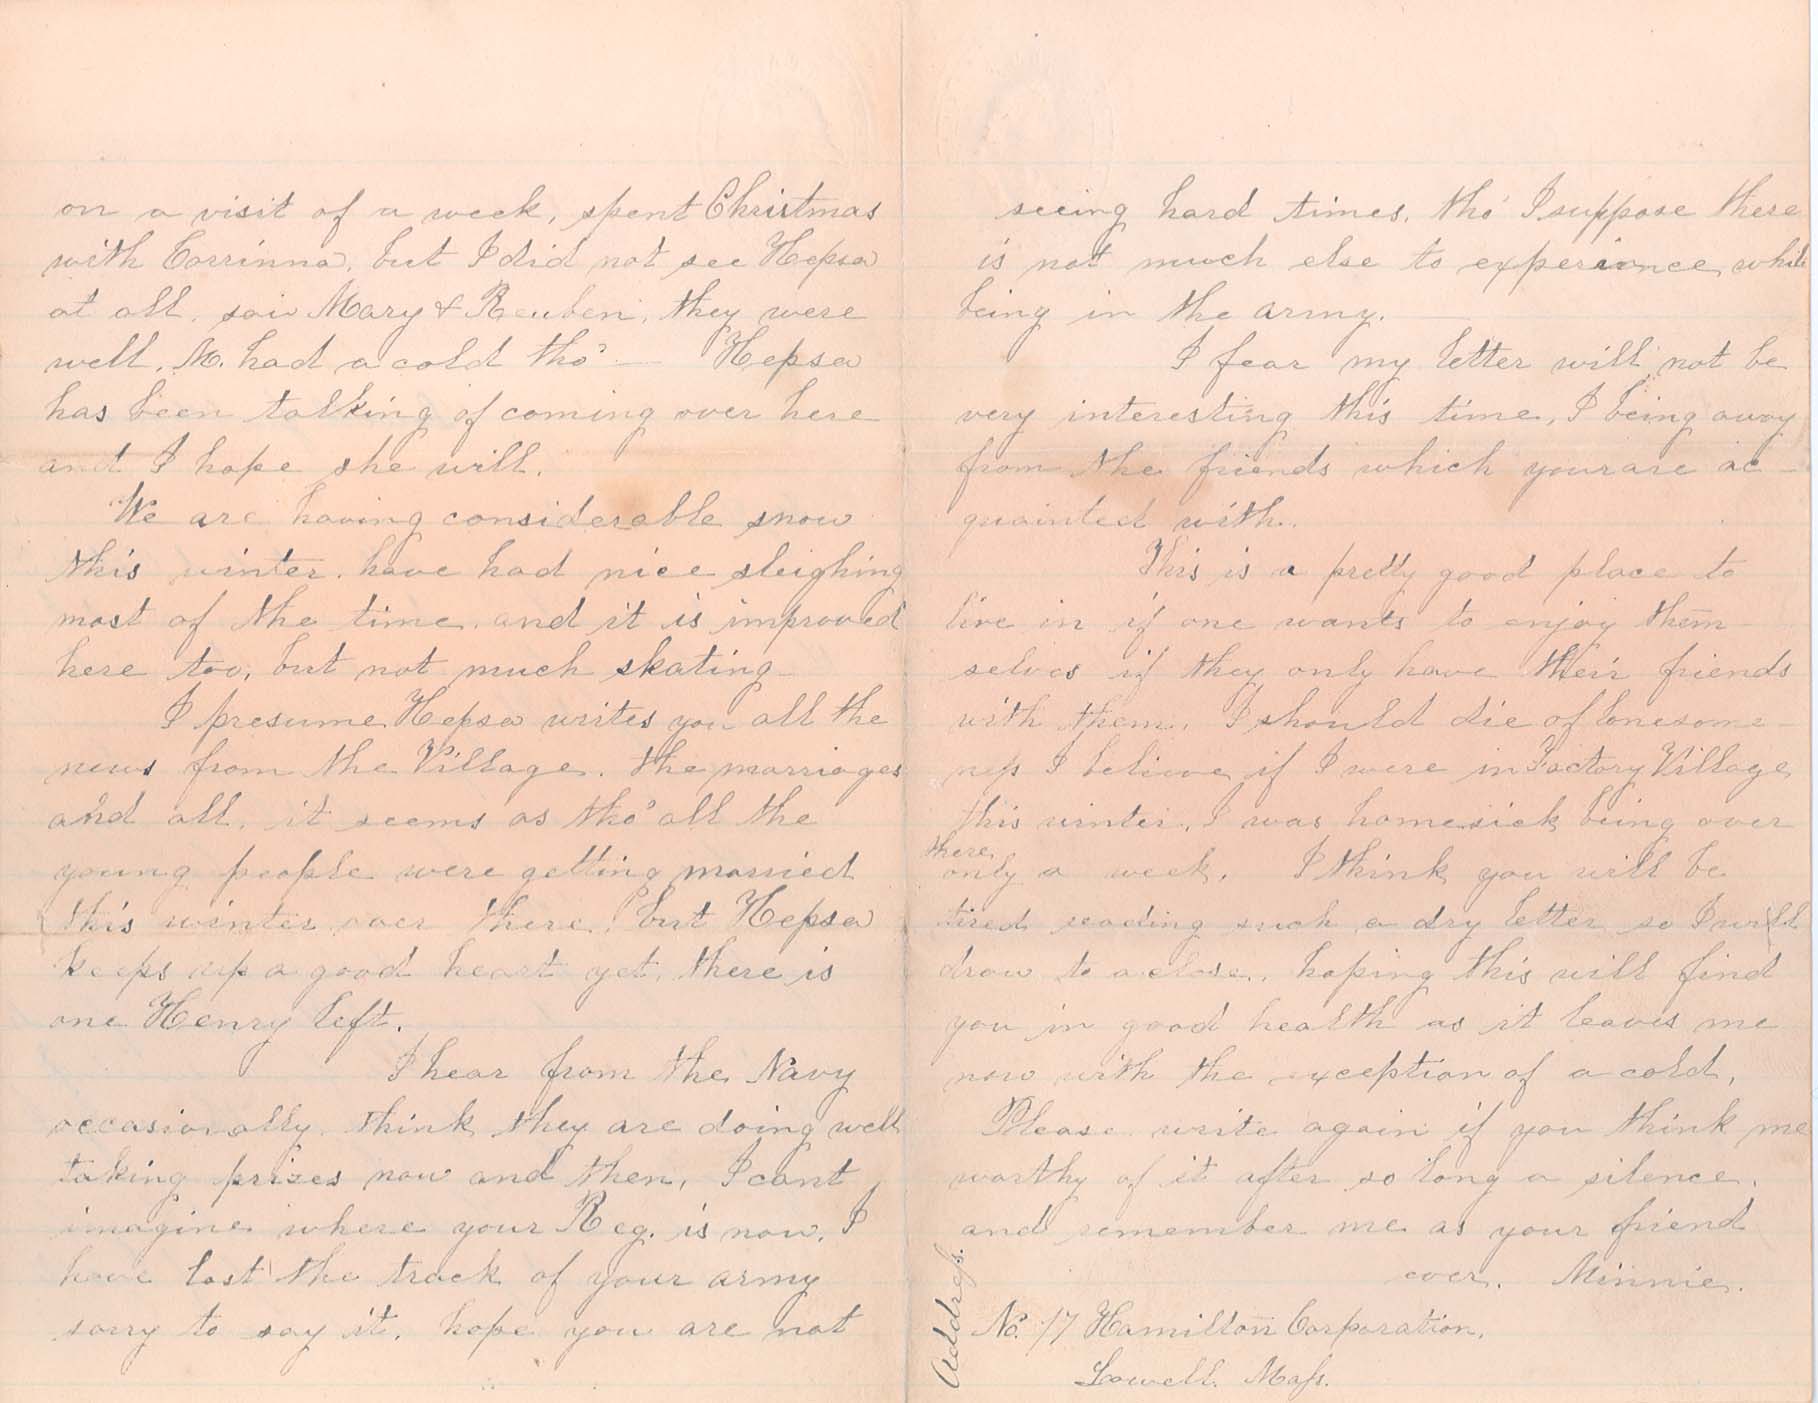 on a visit of a week, spent Christmas
with Corrinna, but I did not see Hepsa
at all, saw Mary & Reuben, they were
well, M. had a cold tho' — Hepsa
has been talking of coming over here
and I hope she will.
We are having considerable snow
this winter, have had nice sleighing
most of the time, and it is improved
here too, but not much skating
I presume Hepsa writes you all the
news from the Village, the marriages
and all, it seems as tho' all the
young people were getting married
this winter over there, but Hepsa
keeps up a good heart yet, there is
one Henry left.
I hear from the Navy
occasionally, think they are doing well
taking prizes now and then, I cant
imagine where your Reg. is now, I
have lost the track of your army
sorry to say it, hope you are not
seeing hard times, tho' I suppose there
is not much else to experience while
being in the army. —
I fear my letter will not be
very interesting this time, I being away
from the friends which your are ac-
quainted with.
This is a pretty good place to
live in if one wants to enjoy them-
selves if they only have their friends
with them, I should die of lonesome-
ness I believe if I were in Factory Village
this winter, I was homesick being over
there
only a week. I think you will be
tired reading such a dry letter so I will
draw to a close, hoping this will find
you in good health as it leaves me
now with the exception of a cold,
Please write again if you think me
worthy of it after so long a silence,
and remember me as your friend
ever, Minnie.
Address.
No. 17 Hamilton Corporation,
Lowell, Mass.